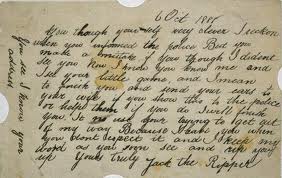 6 Oct 1888
You though your-self very clever I reckon
when you informed the police But you
made a mistake if you though I dident
see you Now I know you know me and
I see your little game, and I mean
to finish you and send your ears to
your wife if you show this to the police
or help them if you do I will finish
you. It no use your trying to get out
of my way Because I have you when
you dont expect it and I keep my
word as you soon see and rip you
up Yours truly Jack the Ripper
You see I know your
address